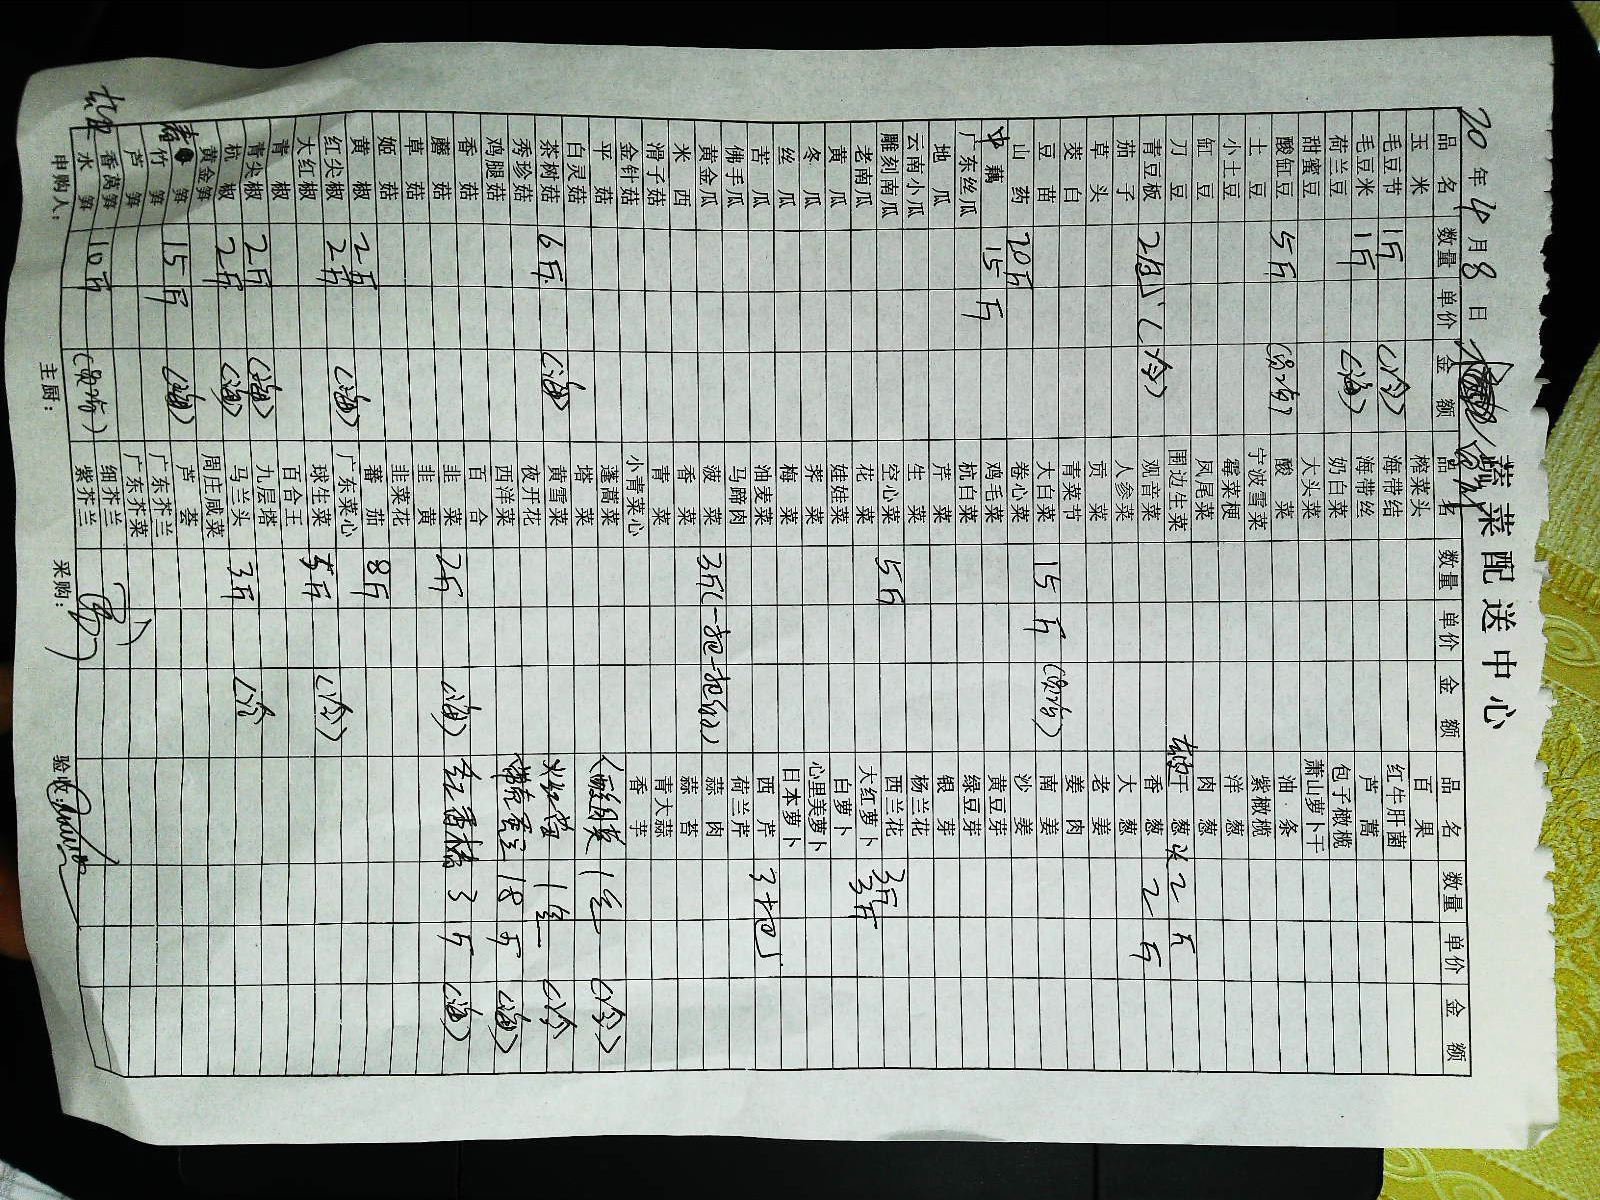 蔬菜配送中心
20 年 4 月 8 日
品名 数量 单价 金额 品名 数量 单价 金额 品名 数量 单价 金额
玉米 榨菜头 百果
毛豆节 1斤 (冷) 海带结 红牛肝菌
毛豆米 1斤 (海) 海带丝 芦蒿
荷兰豆 奶白菜 包子橄榄
甜蜜豆 大头菜 萧山萝卜干
酸缸豆 5斤 酸菜 油条
土豆 宁波雪菜 紫橄榄
小土豆 霉菜梗 洋葱
缸豆 凤尾菜 肉葱
刀豆 围边生菜 干葱 2斤
青豆板 2包 (冷) 观音菜 香葱 2斤
茄子 人参菜 大葱
草头 贡菜 老姜
茭白 青菜节 姜肉
豆苗 大白菜 15斤 南姜
山药 20斤 卷心菜 沙姜
中藕 15斤 鸡毛菜 黄豆芽
广东丝瓜 杭白菜 绿豆芽
地瓜 芹菜 银芽
云南小瓜 生菜 杨兰花
雕刻南瓜 空心菜 5斤 西兰花 3斤
老南瓜 花菜 大红萝卜 3斤
黄瓜 娃娃菜 白萝卜
冬瓜 荠菜 心里美萝卜
丝瓜 梅菜 日本萝卜
苦瓜 油麦菜 西芹 3把
佛手瓜 马蹄肉 荷兰芹
黄金瓜 菠菜 3斤(一把一把的) 蒜肉
米西 香菜 蒜苔
滑子菇 青菜 青大蒜
金针菇 小青菜心 香芋
平菇 蓬蒿菜 (冷)
白灵菇 塔菜
茶树菇 6斤 (海) 黄雪菜 1包 (冷)
秀珍菇 夜开花
鸡腿菇 西洋菜 18斤 (海)
香菇 百合
蘑菇 韭菜 2斤 (海) 红番椒 3斤 (海)
草菇 韭黄
姬菇 韭菜花
黄椒 2斤 蕃茄 8斤
红尖椒 2斤 (海) 广东菜心
大红椒 球生菜 5斤 (冷)
青椒 百合王
青尖椒 2斤 (海) 九层塔
杭椒 2斤 (海) 马兰头 3斤 (冷)
黄金笋 周庄咸菜
竹笋 15斤 (海) 芦荟
芦笋 广东芥兰
广东芥菜
香莴笋 细芥兰
水笋 10斤 紫芥兰
申购人: 主厨: 采购: 验收: